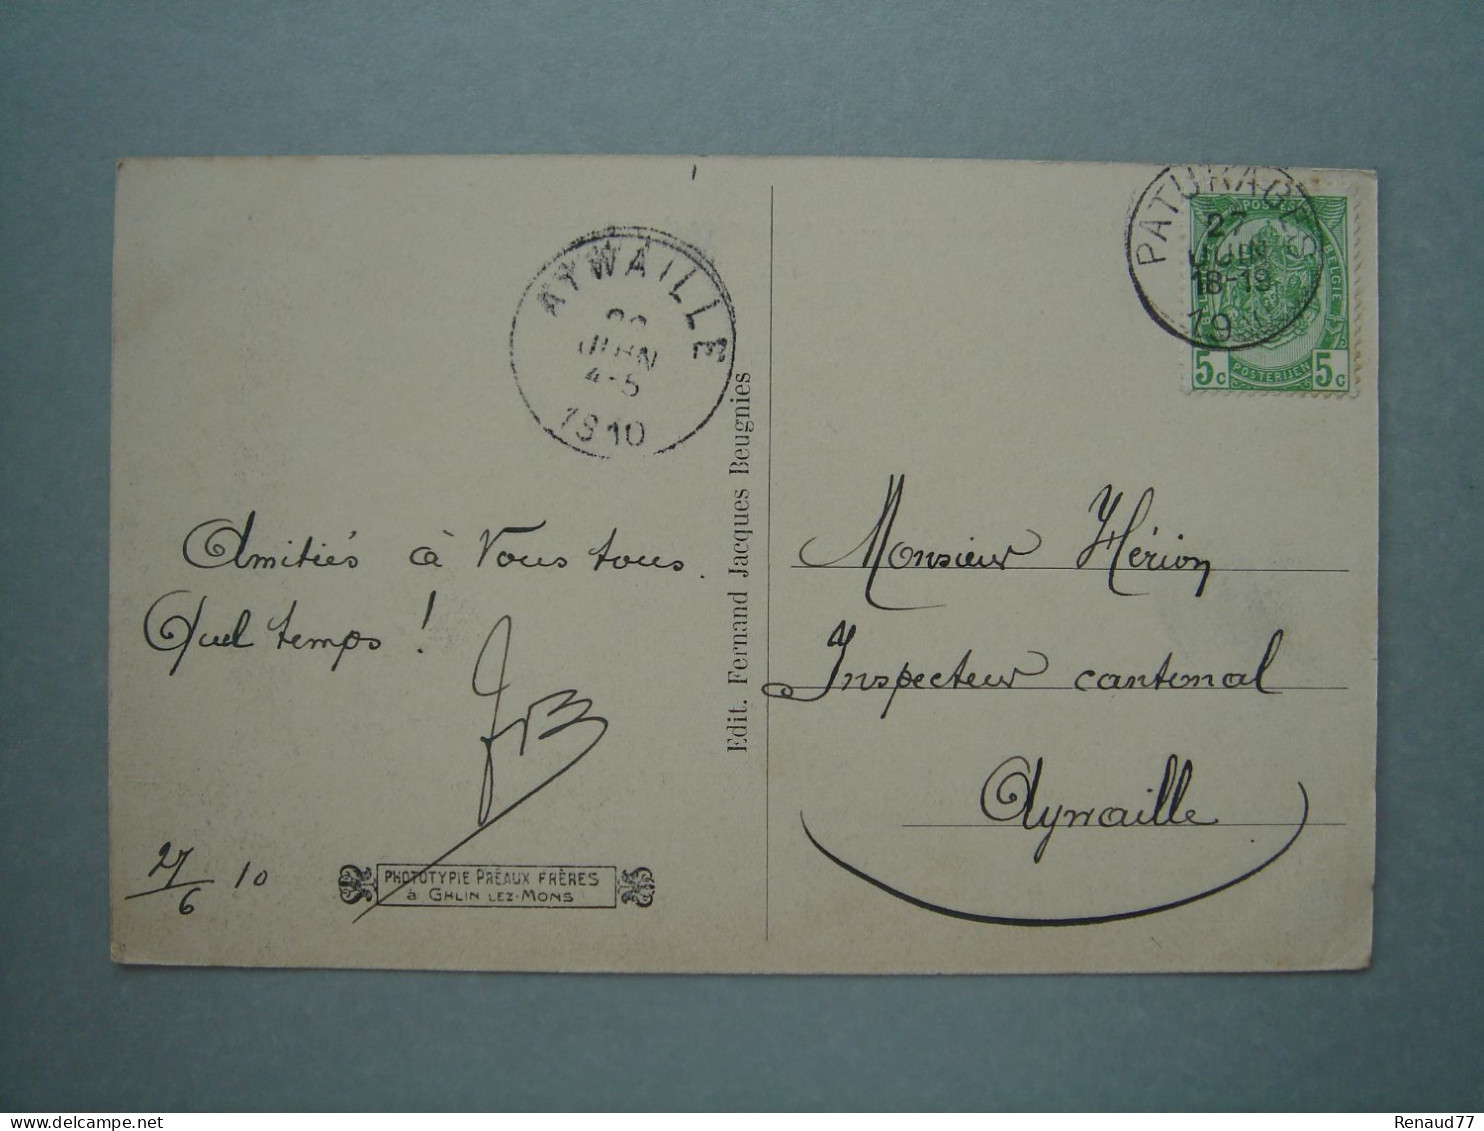 AYWAILLE
JUIN
4-5
1910
Amitiés à Vous tous.
Quel temps !
27/6 10
PHOTOTYPIE PRÉAUX FRÈRES
à GHLIN LEZ-MONS
Edit. Fernand Jacques Beugnies
PATURAGES
27
JUIN
18-19
POSTERIJEN
5c 5c
Monsieur Hérion
Inspecteur cantonal
Aywaille
Renaud77